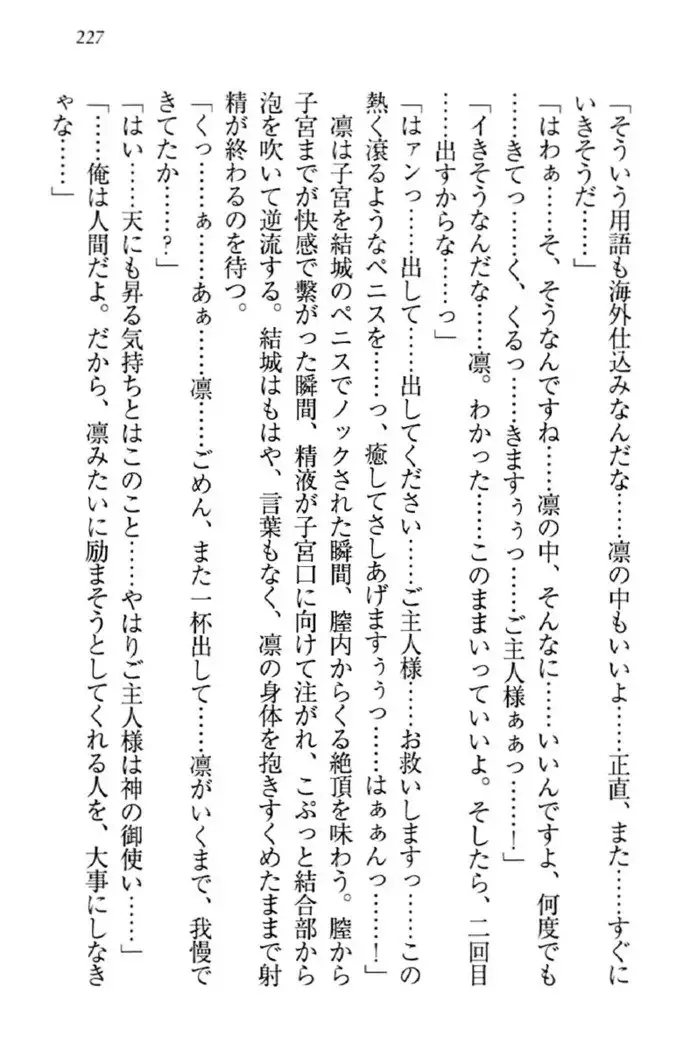 227
「そういう用語も海外仕込みなんだな……凛の中もいいよ……正直、また……すぐに
いきそうだ……」
「はわぁ……そ、そうなんですね……凛の中、そんなに……いいんですよ、何度でも
……きてっ……く、くるっ……きますぅぅっ……ご主人様ぁぁっ……！」
「イきそうなんだな……凛。わかった……このままいっていいよ。そしたら、二回目
……出すからな……っ」
「はァンっ……出して……出してください……ご主人様……お救いしますっ……この
熱く滾るようなペニスを……っ、癒してさしあげますぅぅっ……はぁぁんっ……！」
　凛は子宮を結城のペニスでノックされた瞬間、膣内からくる絶頂を味わう。膣から
子宮までが快感で繋がった瞬間、精液が子宮口に向けて注がれ、こぷっと結合部から
泡を吹いて逆流する。結城はもはや、言葉もなく、凛の身体を抱きすくめたままで射
精が終わるのを待つ。
「くっ……ぁ……あぁ……凛……ごめん、また一杯出して……凛がいくまで、我慢で
きてたか……？」
「はい……天にも昇る気持ちとはこのこと……やはりご主人様は神の御使い……」
「……俺は人間だよ。だから、凛みたいに励まそうとしてくれる人を、大事にしなき
ゃな……」